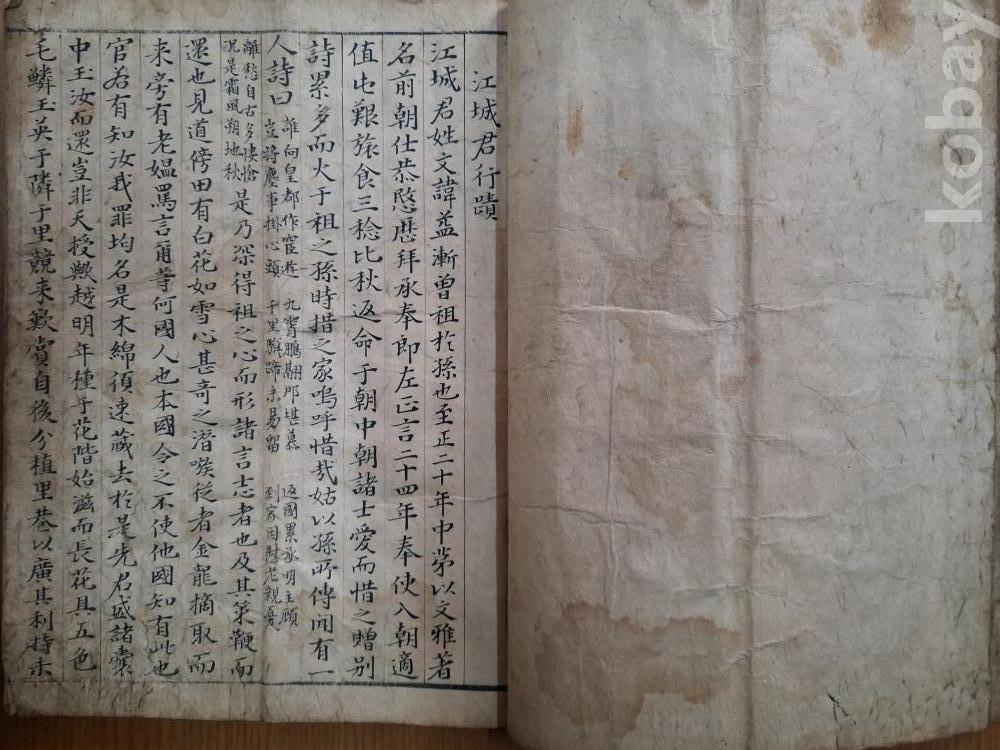 江城君行蹟
江城君姓文諱益漸曾祖於孫也至正二十年中第以文雅著
名前朝仕恭愍歷拜承奉郎左正言二十四年奉使入朝適
值屯艱旅食三稔比秋返命于朝中朝諸士愛而惜之贈別
詩累多而火于祖之孫時措之家嗚呼惜哉姑以孫所傳聞有一
人詩曰 誰向皇都作宦遊 豈將塵事掛心頭 九霄鵬翮那堪慕 千里騏蹄未易留 返國累承明主顧 到家因慰老親憂
離愁自古多悽愴 况是霜風朔地秋 是乃深得祖之心而形諸言志者也及其策鞭而
還也見道傍田有白花如雪心甚奇之潛嗾從者金龍摘取而
来旁有老媼罵言甭等何國人也本國令之不使他國知有此也
官若有知汝我罪均名是木綿須速藏去於是先君盛諸囊
中玉汝而還豈非天授歟越明年種于花階始滋而長花具五色
毛鱗玉英于隣于里競来歎賞自後分植里巷以廣其利時未
kobay